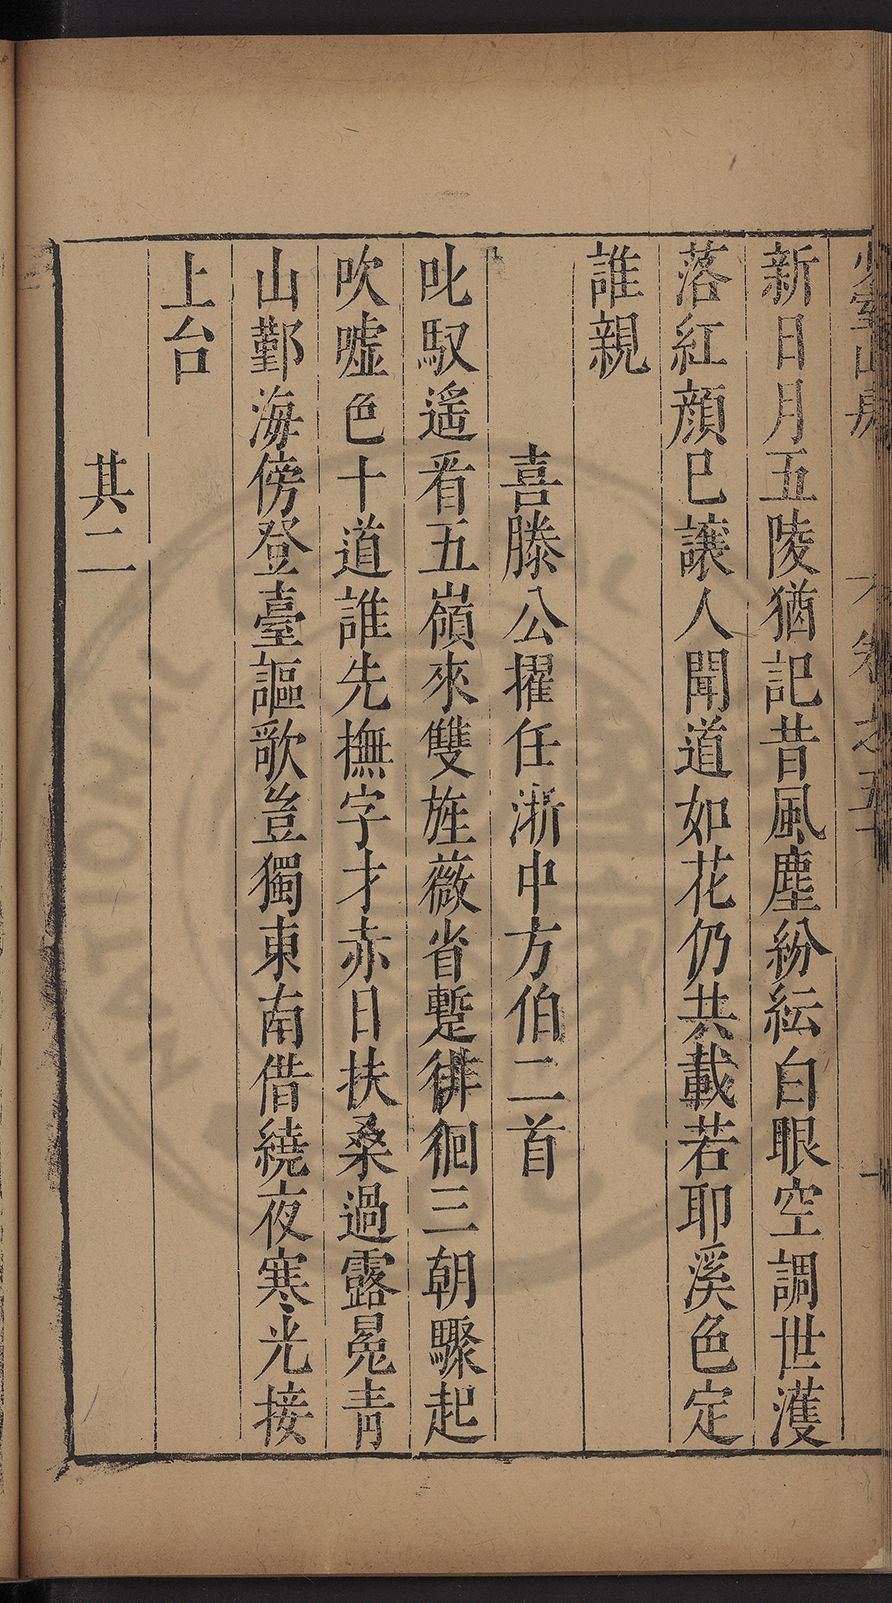 新日月五陵猶記昔風塵紛紜白眼空調世濩
落紅顔巳讓人聞道如花仍共載若耶溪色定
誰親
喜滕公擢任浙中方伯二首
叱馭遥看五嶺來雙旌薇省蹔徘徊三朝驟起
吹噓色十道誰先撫字才赤日扶桑過露冕青
山鄞海傍登臺謳歌豈獨東南借繞夜寒光接
上台
其二